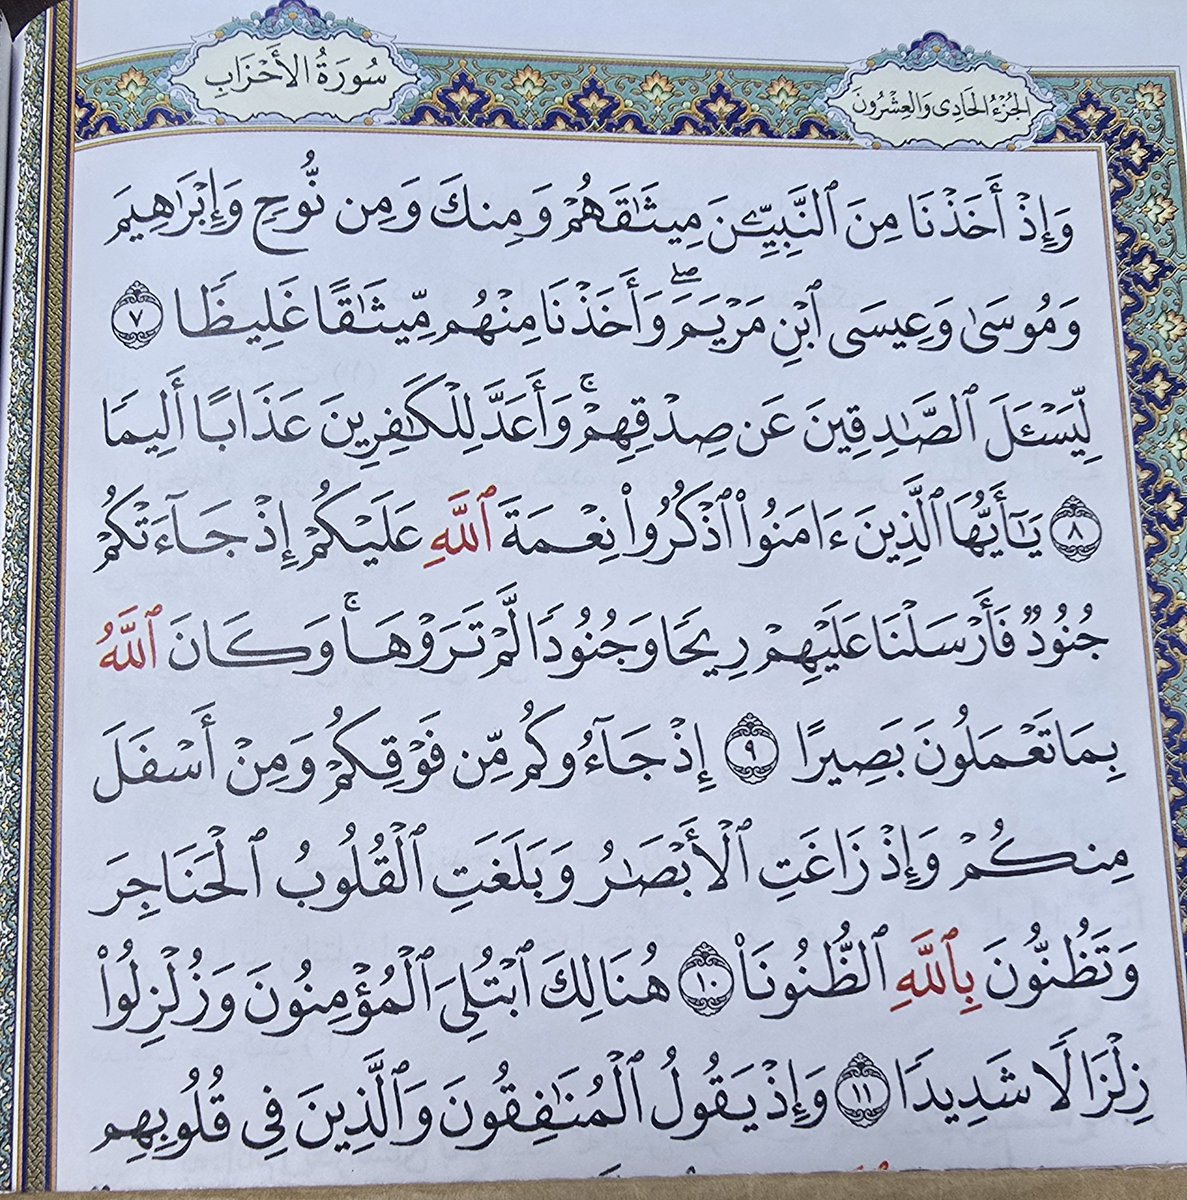 الجُزْءُ الحَادِى وَالعِشْرُونَ
سُورَةُ الأَحْزَابِ
وَإِذْ أَخَذْنَا مِنَ ٱلنَّبِيِّـۧنَ مِيثَٰقَهُمْ وَمِنكَ وَمِن نُّوحٍ وَإِبْرَٰهِيمَ
وَمُوسَىٰ وَعِيسَى ٱبْنِ مَرْيَمَ ۖ وَأَخَذْنَا مِنْهُم مِّيثَٰقًا غَلِيظًا ٧
لِّيَسْـَٔلَ ٱلصَّٰدِقِينَ عَن صِدْقِهِمْ ۚ وَأَعَدَّ لِلْكَٰفِرِينَ عَذَابًا أَلِيمًا
٨ يَٰٓأَيُّهَا ٱلَّذِينَ ءَامَنُوا۟ ٱذْكُرُوا۟ نِعْمَةَ ٱللَّهِ عَلَيْكُمْ إِذْ جَآءَتْكُمْ
جُنُودٌ فَأَرْسَلْنَا عَلَيْهِمْ رِيحًا وَجُنُودًا لَّمْ تَرَوْهَا ۚ وَكَانَ ٱللَّهُ
بِمَا تَعْمَلُونَ بَصِيرًا ٩ إِذْ جَآءُوكُم مِّن فَوْقِكُمْ وَمِنْ أَسْفَلَ
مِنكُمْ وَإِذْ زَاغَتِ ٱلْأَبْصَٰرُ وَبَلَغَتِ ٱلْقُلُوبُ ٱلْحَنَاجِرَ
وَتَظُنُّونَ بِٱللَّهِ ٱلظُّنُونَا۠ ١٠ هُنَالِكَ ٱبْتُلِىَ ٱلْمُؤْمِنُونَ وَزُلْزِلُوا۟
زِلْزَالًا شَدِيدًا ١١ وَإِذْ يَقُولُ ٱلْمُنَٰفِقُونَ وَٱلَّذِينَ فِى قُلُوبِهِم